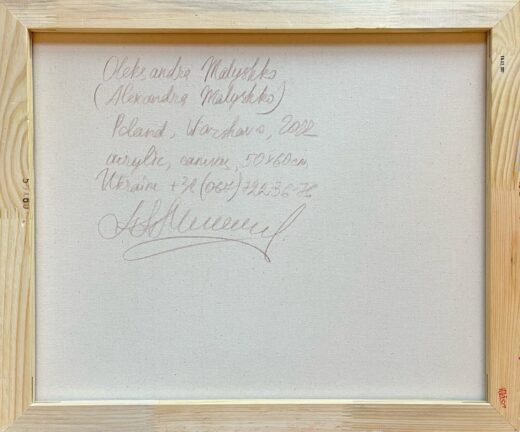 Oleksandra Malyshko
(Alexandra Malyshko)
Poland, Warshava, 2022
acrylic, canvas, 50x60cm
Ukraine +38(067)